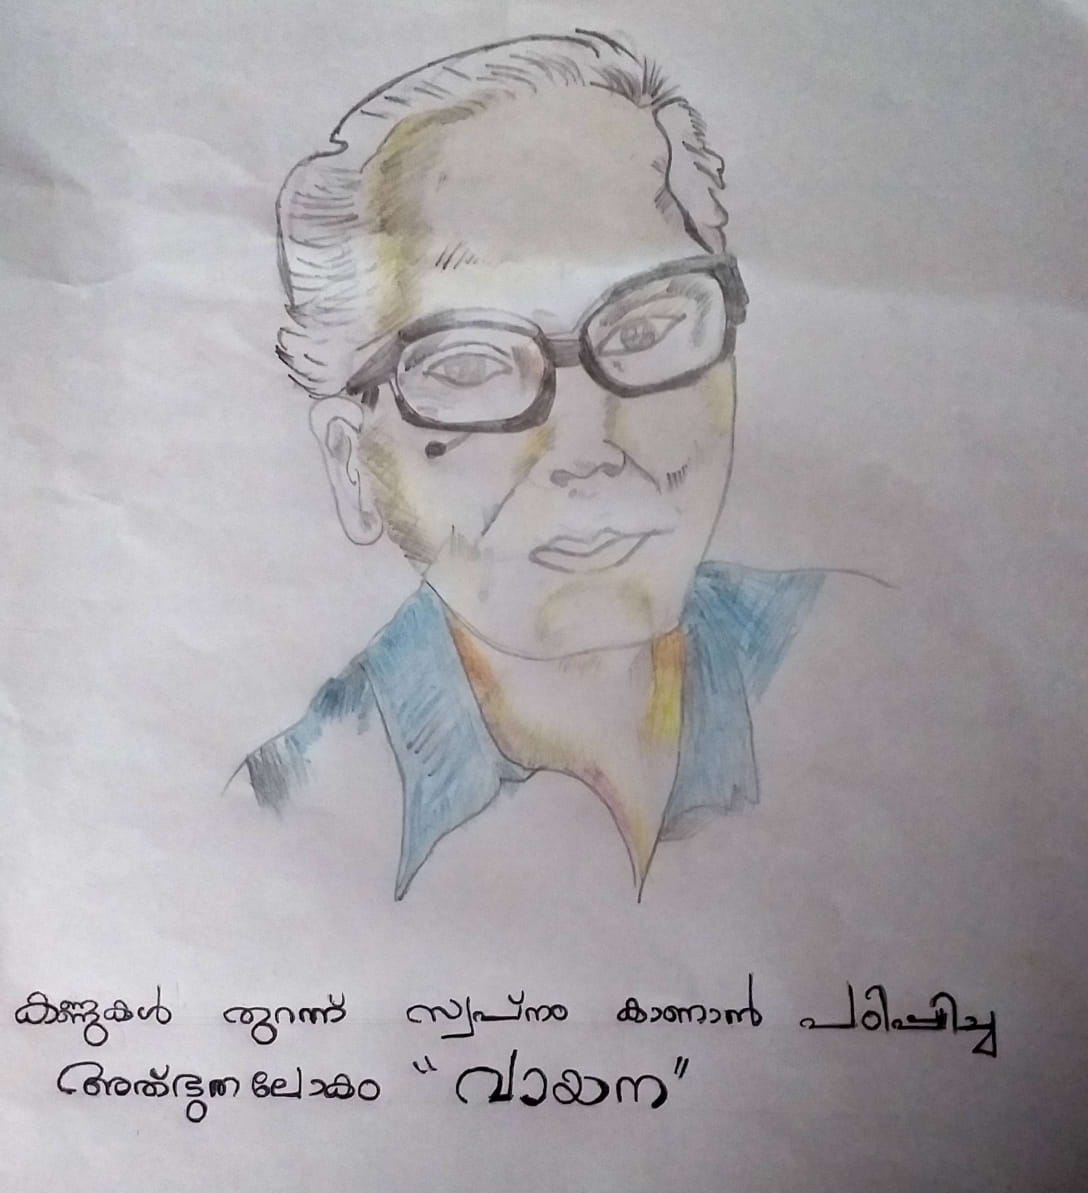 കണ്ണുകൾ തുറന്ന് സ്വപ്നം കാണാൻ പഠിപ്പിച്ച
അത്ഭുത ലോകം "വായന"